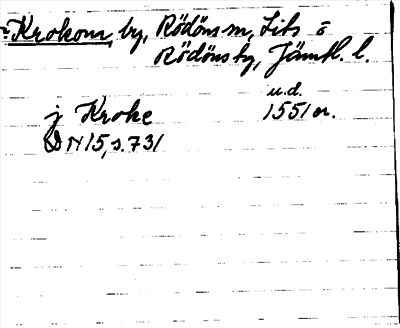 Krokom, by, Rödöns sn, Lits o
Rödöns tg, Jämtl. l.
u.d.
j Kroke 1551 or.
DN 15, s. 731